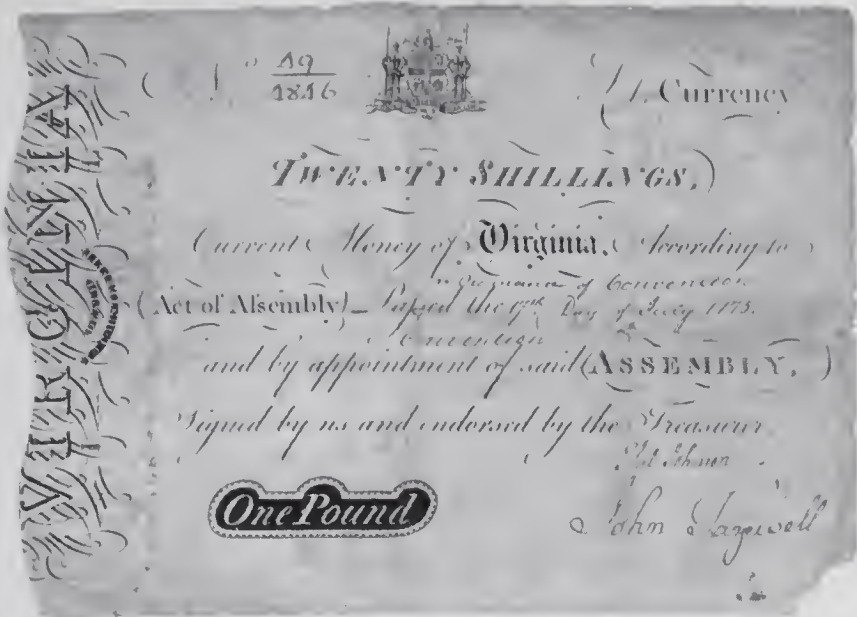 VIRGINIA
49
1846
Currency
TWENTY SHILLINGS,
Current Money of Virginia, According to
Ordinance of Convention
(Act of Aſsembly) Paſsed the 17th Day of July 1775.
Convention
and by appointment of said (ASSEMBLY,)
Signed by us and endorsed by the Treasurer
One Pound
John Tazewell